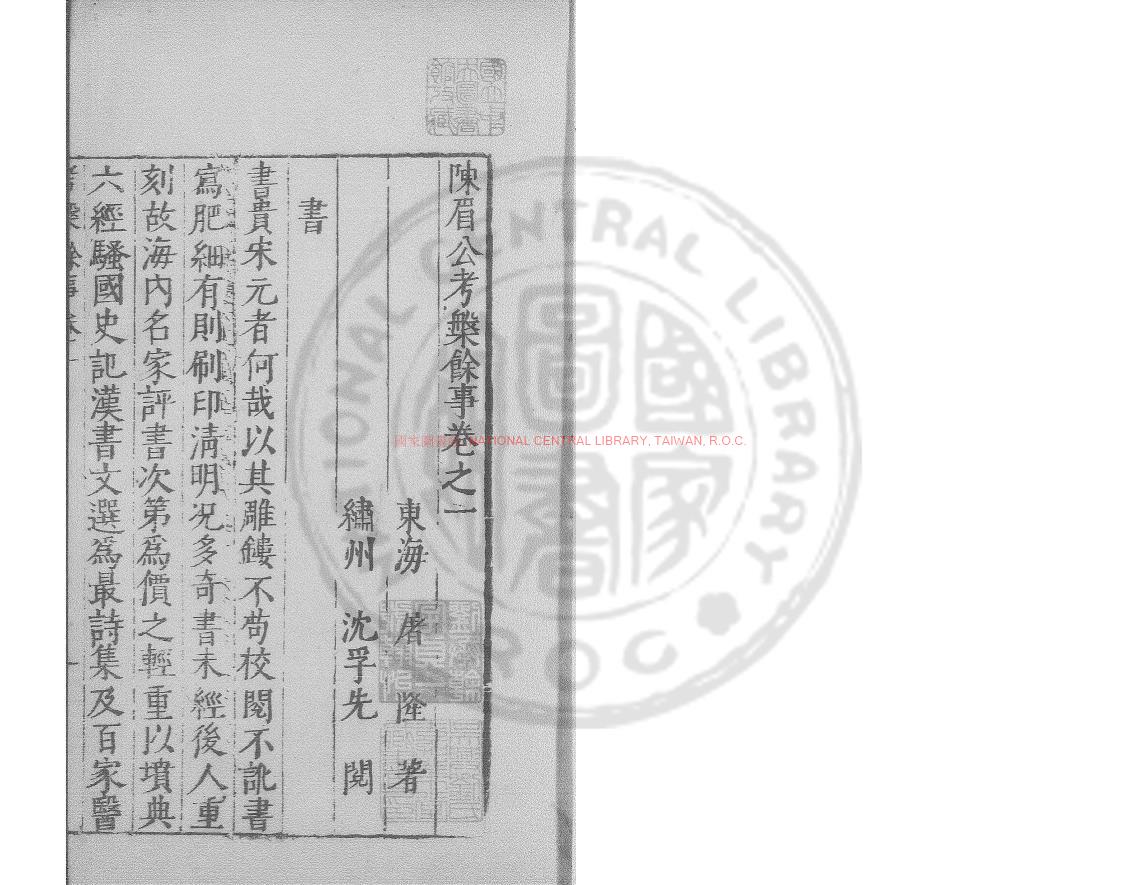 陳眉公考槃餘事卷之一
東海 屠隆 著
繡州 沈孚先 閱
書
書貴宋元者何哉以其雕鏤不苟校閱不訛書
寫肥細有則刷印清明况多奇書未經後人重
刻故海內名家評書次第爲價之輕重以墳典
六經騷國史記漢書文選爲最詩集及百家醫
國家圖書館 NATIONAL CENTRAL LIBRARY, TAIWAN, R.O.C.
NATIONAL CENTRAL LIBRARY
R O C
國家圖書